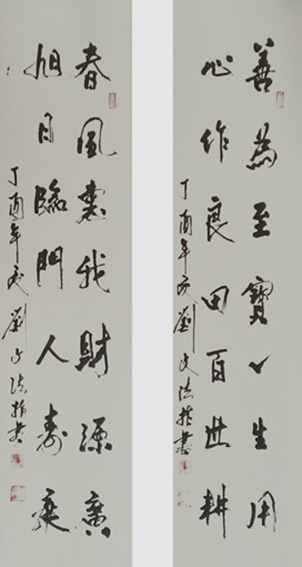 善為至寶一生用
心作良田百世耕
丁酉年 劉文法 書
春風惠我財源廣
旭日臨門人壽康
丁酉年 劉文法 書